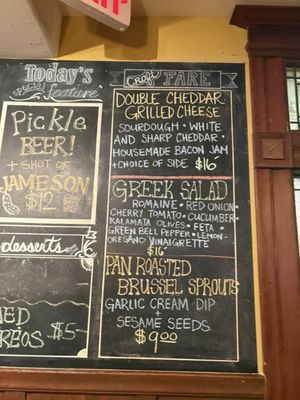 Today's
Special feature
Pickle
BEER!
+ SHOT OF
JAMESON
$12
desserts
$5
Craft FARE
DOUBLE CHEDDAR
GRILLED CHEESE
SOURDOUGH • WHITE
AND SHARP CHEDDAR •
HOUSEMADE BACON JAM
+ CHOICE OF SIDE $16
GREEK SALAD
ROMAINE • RED ONION •
CHERRY TOMATO • CUCUMBER •
KALAMATA OLIVES • FETA •
GREEN BELL PEPPER • LEMON-
OREGANO VINAIGRETTE
$16
PAN ROASTED
BRUSSEL SPROUTS
GARLIC CREAM DIP
+
SESAME SEEDS
$9.00